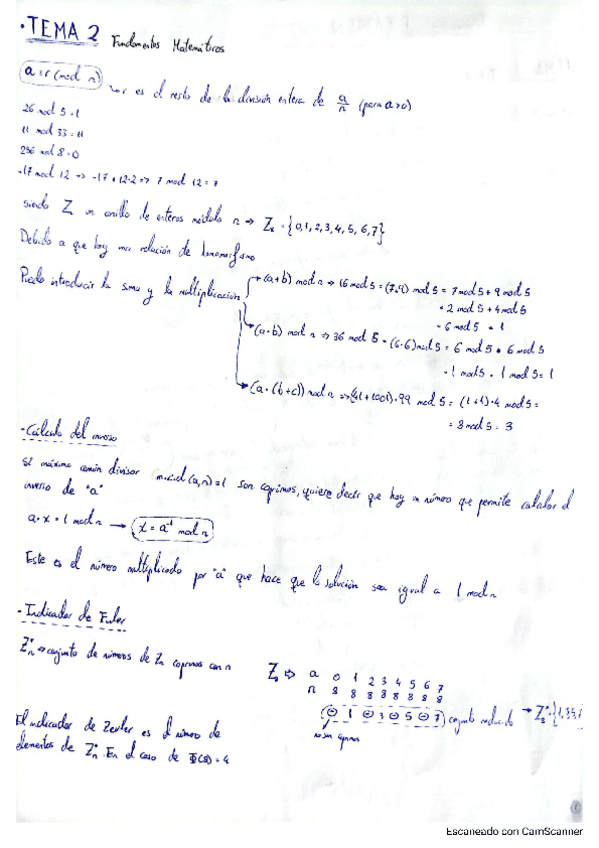 · TEMA 2 Fundamentos Matemáticos
a = r (mod n) → r es el resto de la división entera de a/n (para a>0)
26 mod 5 = 1
11 mod 33 = 11
256 mod 8 = 0
-17 mod 12 => -17 + 12·2 => 7 mod 12 = 7
siendo Z un anillo de enteros módulo n => Z8 = {0,1,2,3,4,5,6,7}
Debido a que hay una relación de homomorfismo
Puedo introducir la suma y la multiplicación
(a+b) mod n => 16 mod 5 = (7+9) mod 5 = 7 mod 5 + 9 mod 5
= 2 mod 5 + 4 mod 5
= 6 mod 5 = 1
(a·b) mod n => 36 mod 5 = (6·6) mod 5 = 6 mod 5 · 6 mod 5
= 1 mod 5 · 1 mod 5 = 1
(a·(b+c)) mod n => (41+1001)·99 mod 5 = (1+1)·4 mod 5 =
= 8 mod 5 = 3
- Cálculo del inverso
Si máximo común divisor m.c.d (a,n)=1 son coprimos, quiere decir que hay un número que permite calcular el
inverso de "a"
a·x = 1 mod n → x = a⁻¹ mod n
Este es el número multiplicado por "a" que hace que la solución sea igual a 1 mod n
- Indicador de Euler
Zn* → conjunto de números de Zn coprimos con n
Z8 => a 0 1 2 3 4 5 6 7
n 8 8 8 8 8 8 8 8
1 3 5 7 conjunto reducido → Z8* = {1,3,5,
no son coprimos
El indicador de Euler es el número de
elementos de Zn*. En el caso de Φ(8) = 4
Escaneado con CamScanner